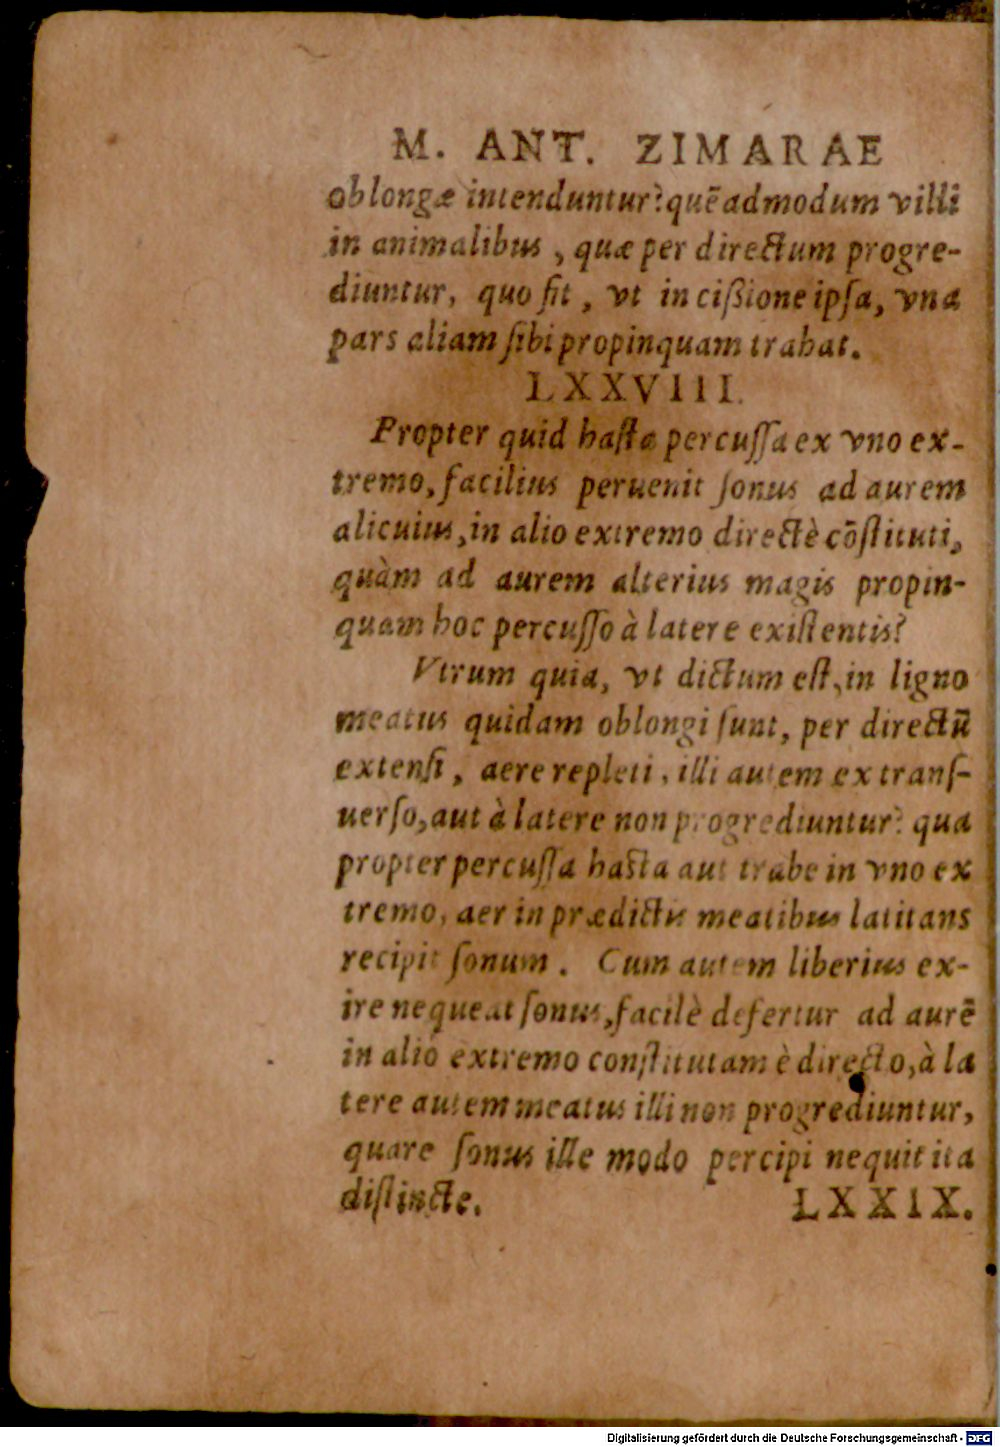 M. ANT. ZIMARAE
oblongæ intenduntur? quẽadmodum villi
in animalibus, quæ per directum progre-
diuntur, quo fit, vt in cißione ipsa, vna
pars aliam sibi propinquam trahat.
LXXVIII.
Propter quid hasta percussa ex vno ex-
tremo, facilius peruenit sonus ad aurem
alicuius, in alio extremo directè cõstituti,
quàm ad aurem alterius magis propin-
quam hoc percusso à latere existentis?
Vtrum quia, vt dictum est, in ligno
meatus quidam oblongi sunt, per directũ
extensi, aere repleti, illi autem ex trans-
uerso, aut à latere non progrediuntur? qua
propter percussa hasta aut trabe in vno ex
tremo, aer in prædictis meatibus latitans
recipit sonum. Cum autem liberius ex-
ire nequeat sonus, facilè defertur ad aurẽ
in alio extremo constitutam è directo, à la
tere autem meatus illi non progrediuntur,
quare sonus ille modo percipi nequit ita
distincte. LXXIX.
Digitalisierung gefördert durch die Deutsche Forschungsgemeinschaft - DFG